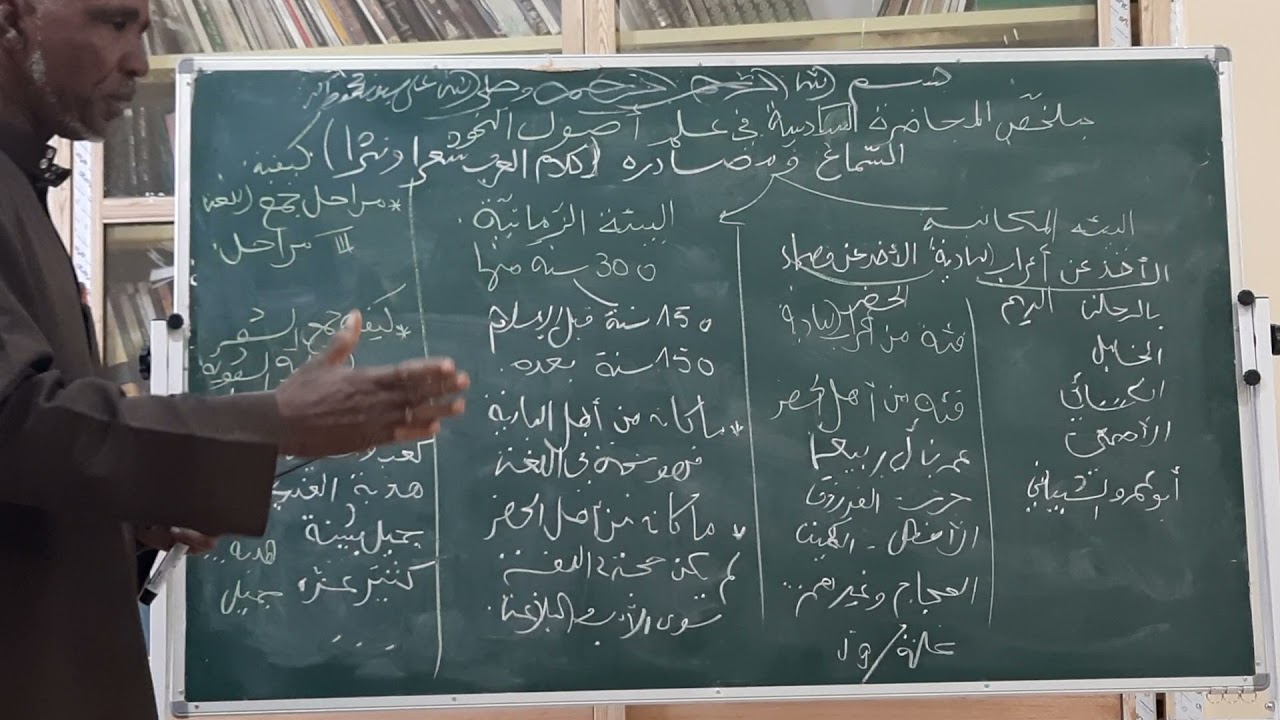 بسم الله الرحمن الرحيم وصلى الله على
ملخص المحاضرة السادسة في علم أصول النحو
السماع ومصادره (كلام العرب شعرا ونثرا) كيفية
البيئه المكانيه
الأخذ عن أعراب البادية، الأخذ عن فصحاء الحضر
بالرحلة اليهم
الخليل
الكسائي
الأصمعي
أبو عمرو الشيباني
فئة من أعراب البادية
فئه من أهل الحضر
عمر بن أبي ربيعة
جرير الفرزدق
الأخطل - الكميت
العجاج وغيرهم...
البيئة الزمانية
300 سنه منها
150 سنة قبل الإسلام
150 سنة بعده.
* ما كان من أهل البادية
فهو حجة في اللغة
* ما كان من أهل الحضر
لم يكن حجة في اللغة
سوى الأدب البلاغة
* مراحل جمع اللغة
III مراحل
* كيف جمع الشعر
هدبة
جميل بثينة
هدبه
كثير عزه
جميل
...